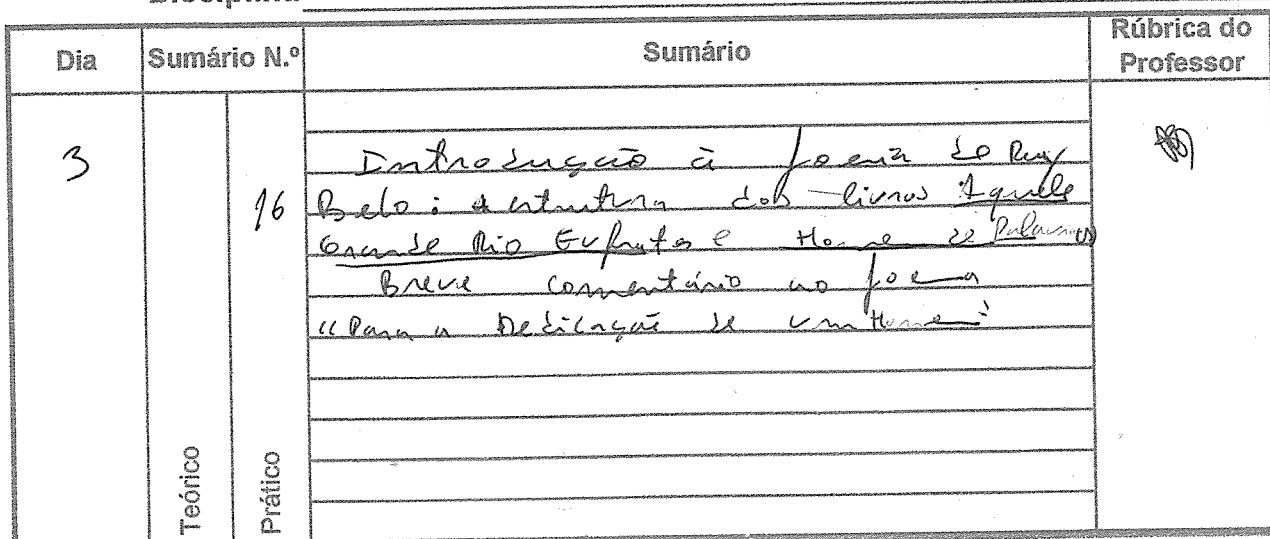 Disciplina
Dia
Sumário N.º
Sumário
Rúbrica do
Professor
3
16
Introdução à poesia de Ruy
Belo: A estrutura dos livros Aquele
Grande Rio Eufrates e Homem de Palavra(s)
Breve comentário ao poema
"Para a Dedicação de um Homem"
Teórico
Prático